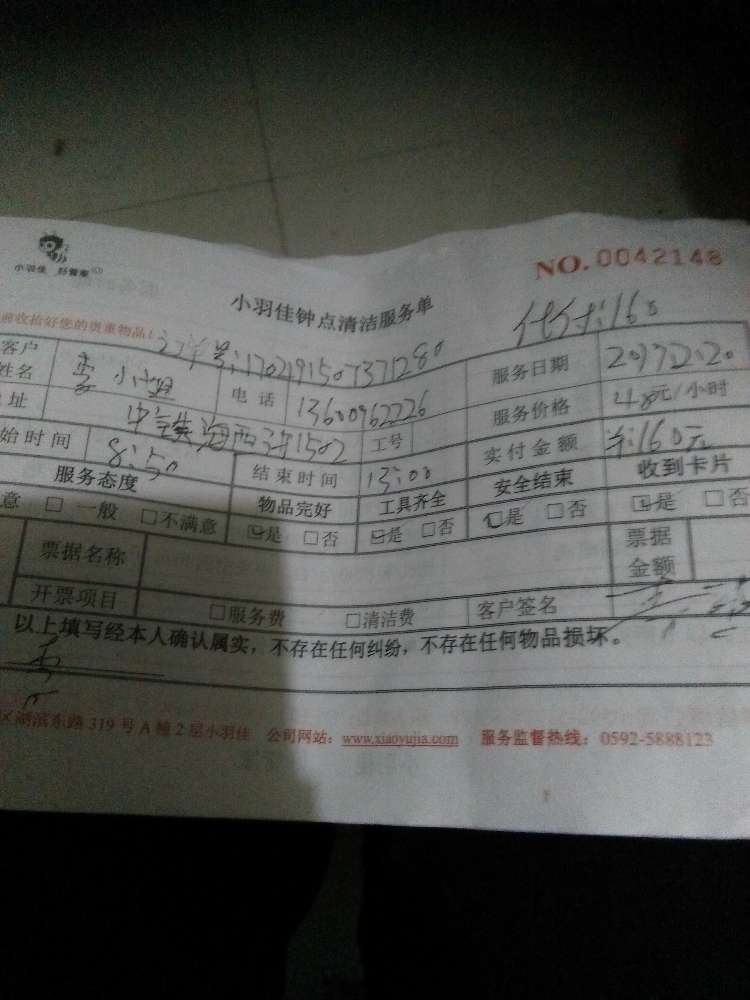 小羽佳 好管家
NO.0042148
小羽佳钟点清洁服务单
前收拾好您的贵重物品!
代付:160
客户姓名 小姐 电话 13600962226 服务日期
址 中铁 1502 工号 服务价格 元/小时
始时间 8:50 结束时间 13:00 实付金额 160元
服务态度 物品完好 工具齐全 安全结束 收到卡片
意 □ 一般 □不满意 □是 □否 □是 □否 □是 □否 □是 □否
票据名称 票据金额
开票项目 □服务费 □清洁费 客户签名
以上填写经本人确认属实，不存在任何纠纷，不存在任何物品损坏。
区湖滨东路 319 号 A 幢 2 层小羽佳 公司网站：www.xiaoyujia.com 服务监督热线：0592-5888123